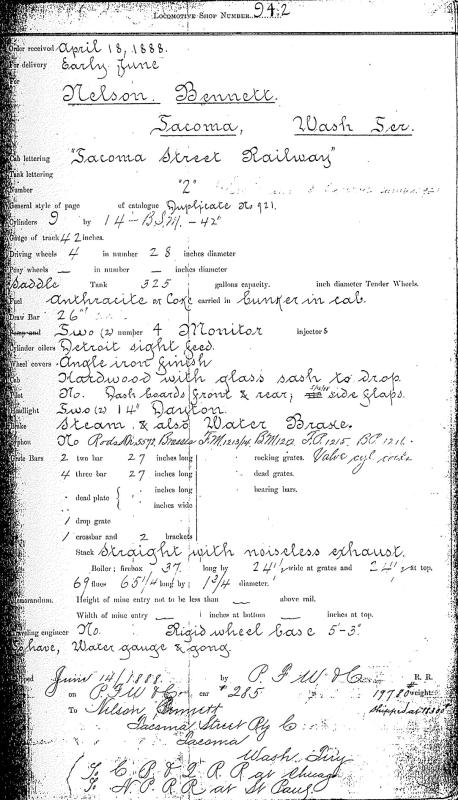 Locomotive Shop Number 942
Order received April 18, 1888.
For delivery Early June
Nelson Bennett.
Tacoma, Wash Ter.
Cab lettering "Tacoma Street Railway"
Tank lettering
Number "2"
General style of page of catalogue Duplicate No 921.
Cylinders 9 by 14 - B.S.M. - 42"
Gauge of track 42 inches.
Driving wheels 4 in number 28 inches diameter
Pony wheels — in number — inches diameter
Saddle Tank 325 gallons capacity. inch diameter Tender Wheels.
Fuel Anthracite or Coke carried in bunker in cab.
Draw Bar 26"
Two (2) number 4 Monitor injectors
Cylinder oilers Detroit sight feed.
Wheel covers Angle iron finish
Cab Hardwood with glass sash to drop
Pilot No. Dash boards front & rear; side flaps.
Headlight Two (2) 14" Dayton.
Brake Steam & also Water Brake.
Syphon No
Valve cyl cocks
Grate Bars 2 two bar 27 inches long rocking grates.
4 three bar 27 inches long dead grates.
dead plate { inches long bearing bars.
inches wide
1 drop grate
1 crossbar and 2 brackets
Stack Straight with noiseless exhaust.
Boiler; firebox 37 long by 24 1/2 wide at grates and 24" at top.
69 flues 65 1/4 long by; 1 3/4 diameter.
Memorandum. Height of mine entry not to be less than — above rail.
Width of mine entry — inches at bottom — inches at top.
Travelling engineer No. Rigid wheel base 5'-3"
To have, Water gauge & gong.
June 14/1888 by P. F. W & C R. R.
on P F W & C car #285 19780 weight.
To Nelson Bennett
Tacoma Street Ry Co
Tacoma
at Chicago
N. P. R R at St Paul